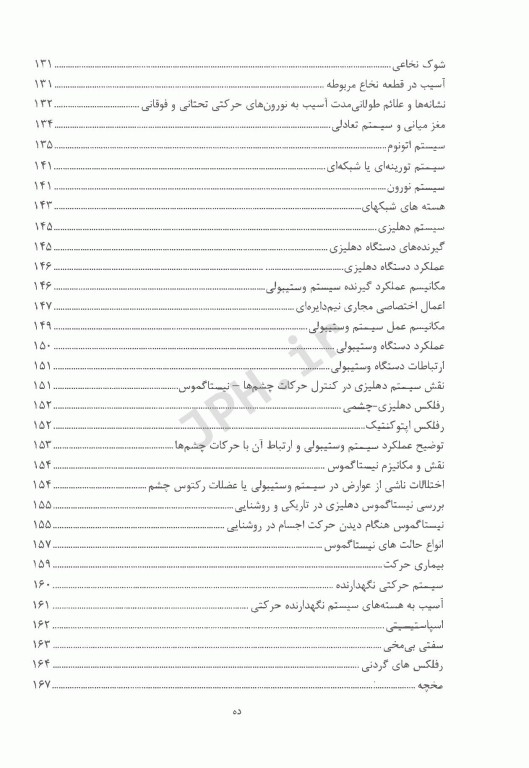 شوک نخاعی ۱۳۱
آسیب در قطعه نخاع مربوطه ۱۳۱
نشانه‌ها و علائم طولانی‌مدت آسیب به نورون‌های حرکتی تحتانی و فوقانی ۱۳۲
مغز میانی و سیستم تعادلی ۱۳۴
سیستم اتونوم ۱۳۵
سیستم تورینه‌ای یا شبکه‌ای ۱۴۱
سیستم نورون ۱۴۱
هسته های شبکهای ۱۴۳
سیستم دهلیزی ۱۴۵
گیرنده‌های دستگاه دهلیزی ۱۴۵
عملکرد دستگاه دهلیزی ۱۴۶
مکانیسم عملکرد گیرنده سیستم وستیبولی ۱۴۶
اعمال اختصاصی مجاری نیم‌دایره‌ای ۱۴۷
مکانیسم عمل سیستم وستیبولی ۱۴۹
عملکرد دستگاه وستیبولی ۱۵۰
ارتباطات دستگاه وستیبولی ۱۵۱
نقش سیستم دهلیزی در کنترل حرکات چشم‌ها – نیستاگموس ۱۵۱
رفلکس دهلیزی-چشمی ۱۵۲
رفلکس اپتوکنتیک ۱۵۲
توضیح عملکرد سیستم وستیبولی و ارتباط آن با حرکات چشم‌ها ۱۵۳
نقش و مکانیزم نیستاگموس ۱۵۴
اختلالات ناشی از عوارض در سیستم وستیبولی یا عضلات رکتوس چشم ۱۵۴
بررسی نیستاگموس دهلیزی در تاریکی و روشنایی ۱۵۵
نیستاگموس هنگام دیدن حرکت اجسام در روشنایی ۱۵۵
انواع حالت های نیستاگموس ۱۵۷
بیماری حرکت ۱۵۹
سیستم حرکتی نگهدارنده ۱۶۰
آسیب به هسته‌های سیستم نگهدارنده حرکتی ۱۶۱
اسپاستیسیتی ۱۶۲
سفتی بی‌مخی ۱۶۳
رفلکس های گردنی ۱۶۴
مخچه ۱۶۷
ده
JPH.ir